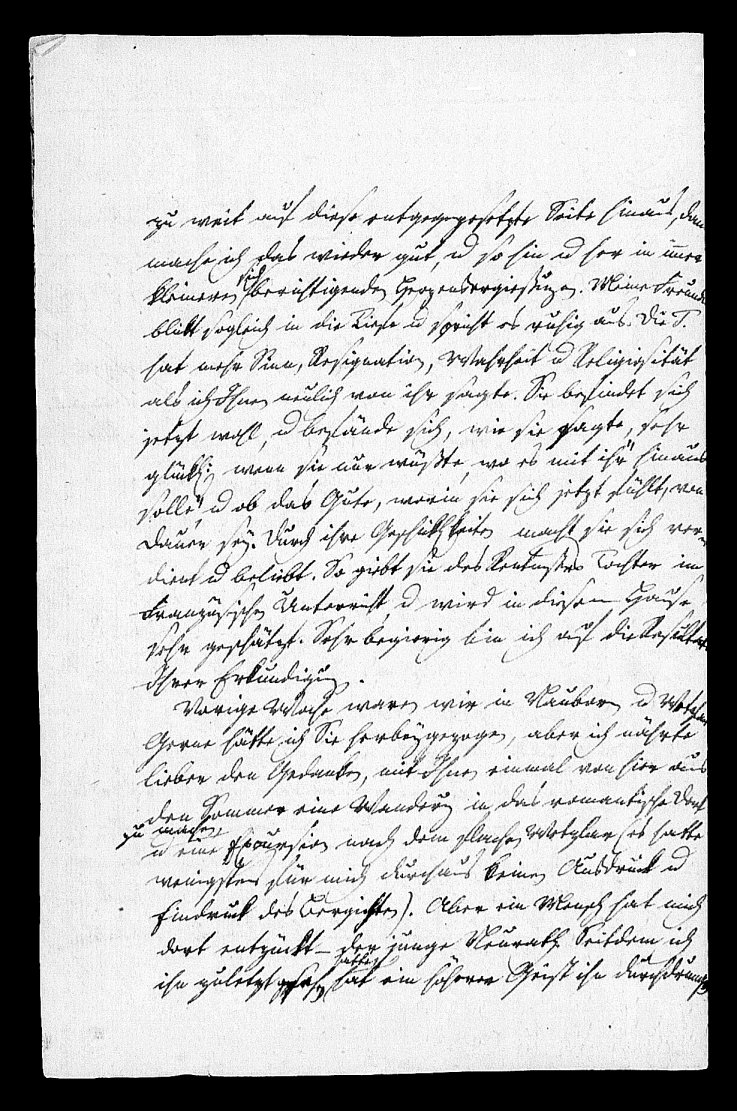 zu weit auf diese entgegengesetzte Seite hinaus, dan
mache ich das wieder gut, u so hin u her in imer
kleineren sich berichtigenden Herzensergießungen. Meine Freund
blikt sogleich in die Tiefe u spricht es ruhig aus. Die T.
hat mehr Sinn, Resignation, Wahrheit u Religiosität
als ich Ihnen neulich von ihr sagte. Sie befindet sich
jetzt wohl, u befände sich, wie sie sagte, sehr
glüklich, wenn sie nur wüßte, wo es mit ihr hinaus
solle u ob das Gute, worin sie sich jetzt fühlt, von
Dauer sey. Durch ihre Geschiklichkeiten macht sie sich ver
dient u beliebt. So giebt sie des Tochter im
Französischen Unterricht, u wird in diesem Hause
sehr geschätzt. Sehr begierig bin ich auf die Resultate
Ihrer Erkundigung.
Vorige Woche waren wir in Nauborn u Wetzlar
Gerne hätte ich Sie herbeygezogen, aber ich nährte
lieber den Gedanken, mit Ihnen einmal von hier aus
den Sommer eine Wanderung in das romantische Dorf
zu machen
u eine Excursion nach dem Wetzlar (es hatte
wenigstens für mich durchaus keinen Ausdruck u
Eindruck des). Aber ein Mensch hat mich
dort entzückt – der junge Neurath. Seitdem ich
ihn zuletzt gesehen hatte, hat ein höherer Geist ihn durchdrungen